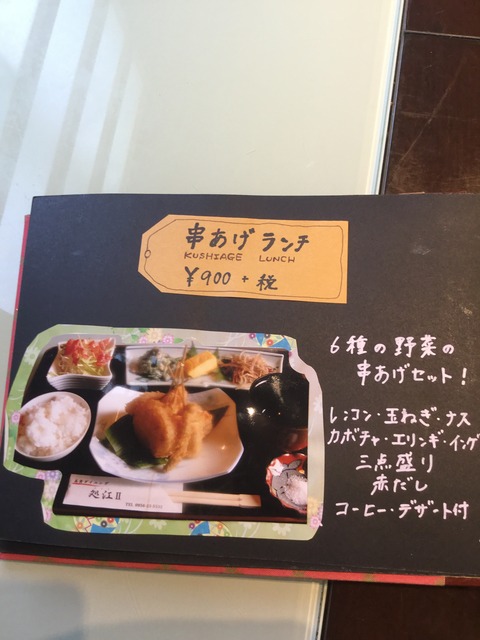 串あげランチ
KUSHIAGE LUNCH
¥900+税
6種の野菜の
串あげセット!
レンコン・玉ねぎ・ナス
カボチャ・エリンギ・インゲ
三点盛り
赤だし
コーヒー・デザート付
II